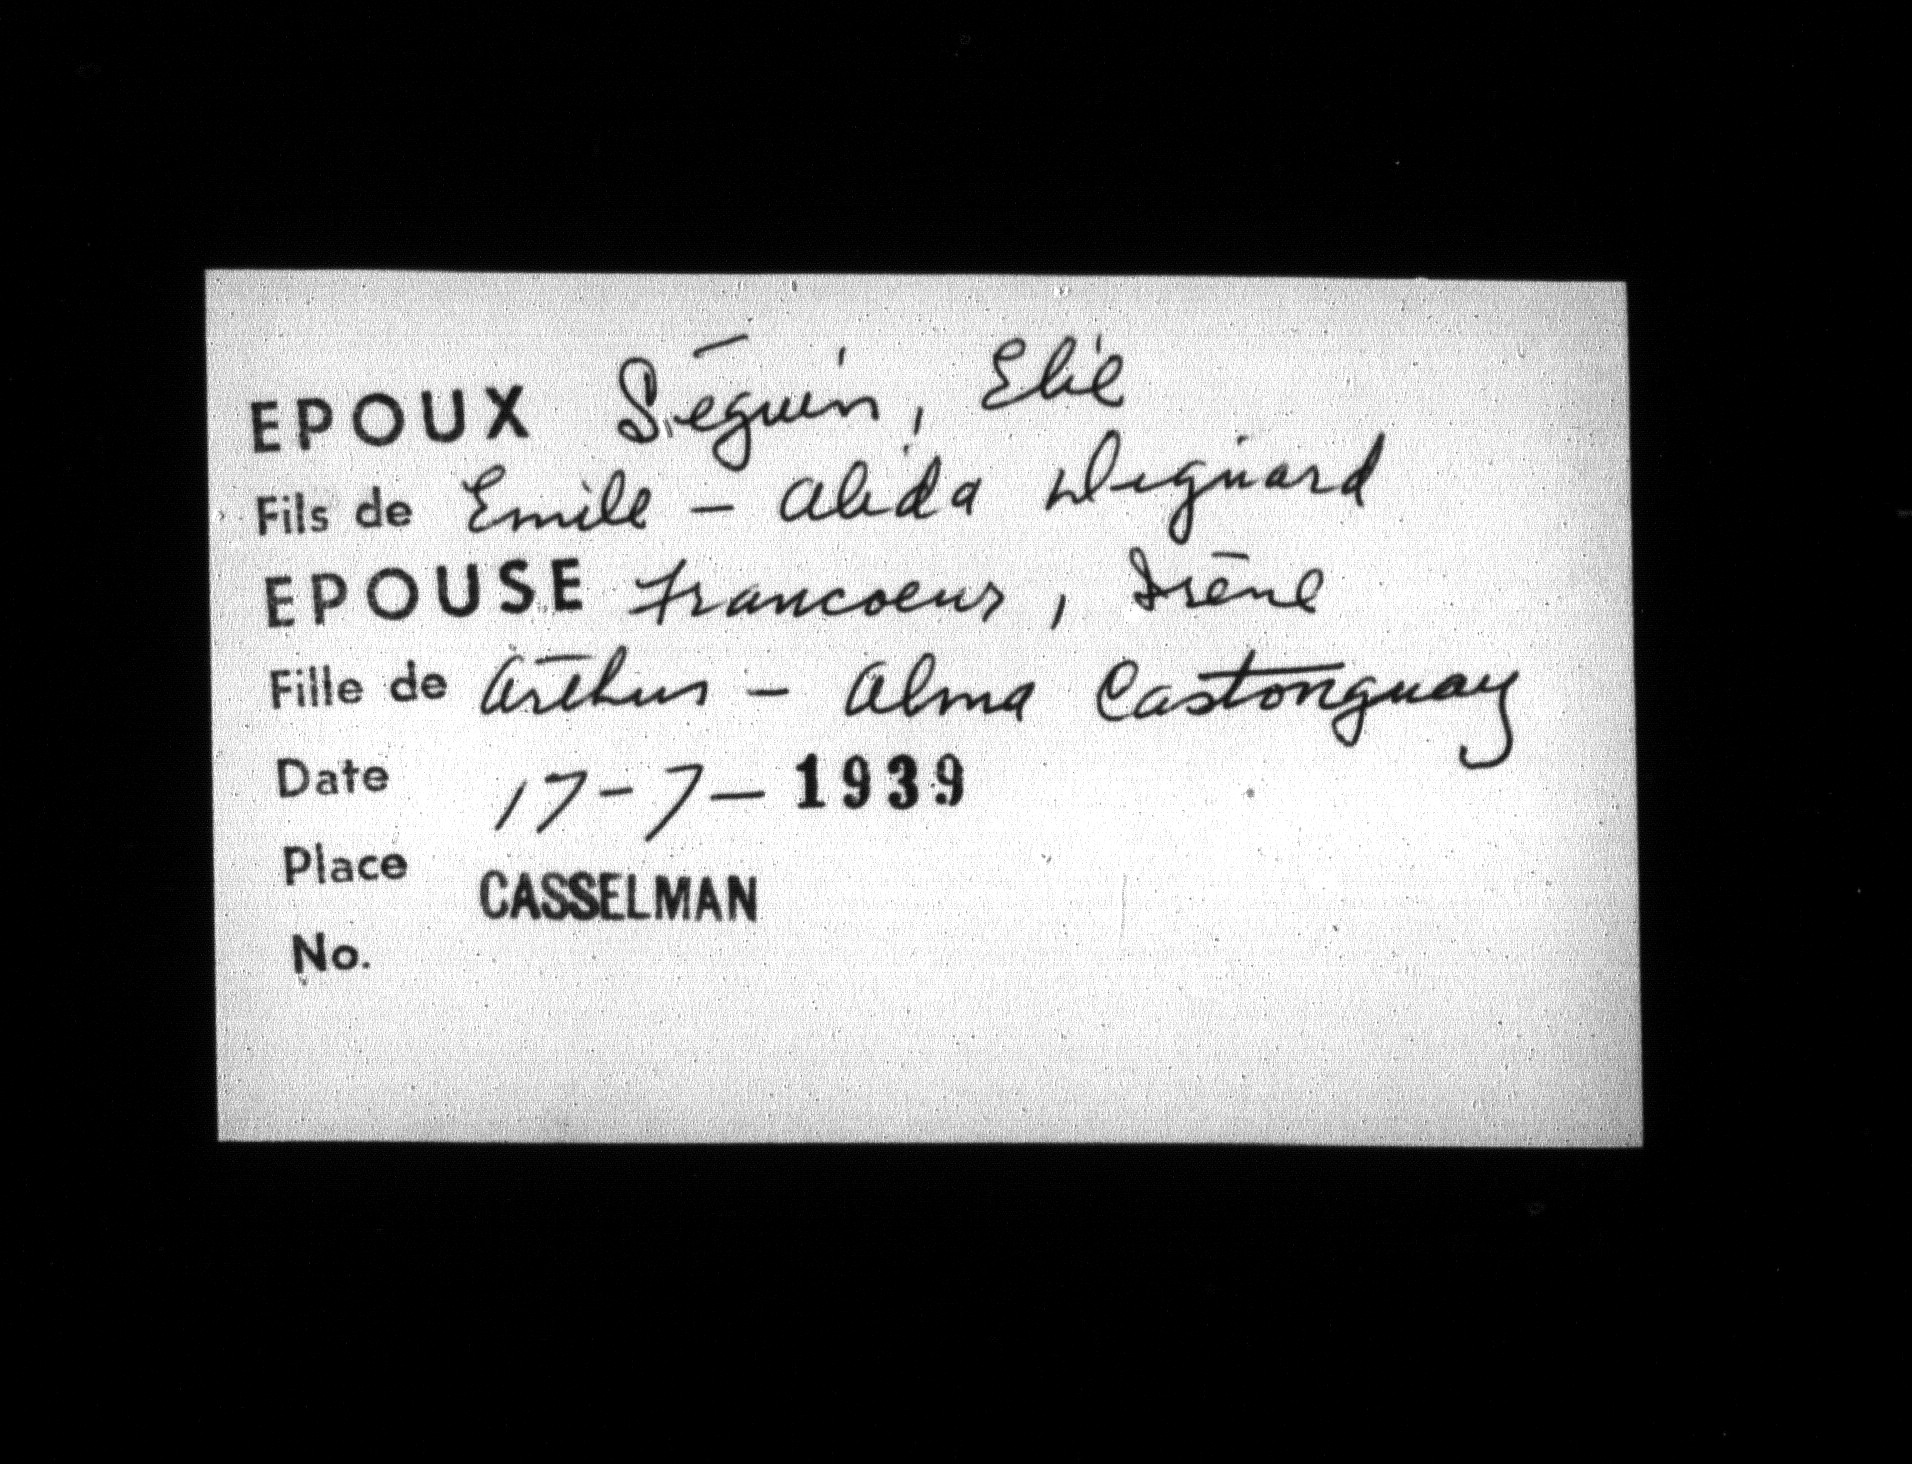 EPOUX Séguin, Elie
Fils de Emile - Alida Diguard
EPOUSE Francoeur, Irène
Fille de Arthur - Alma Castonguay
Date 17-7-1939
Place CASSELMAN
No.